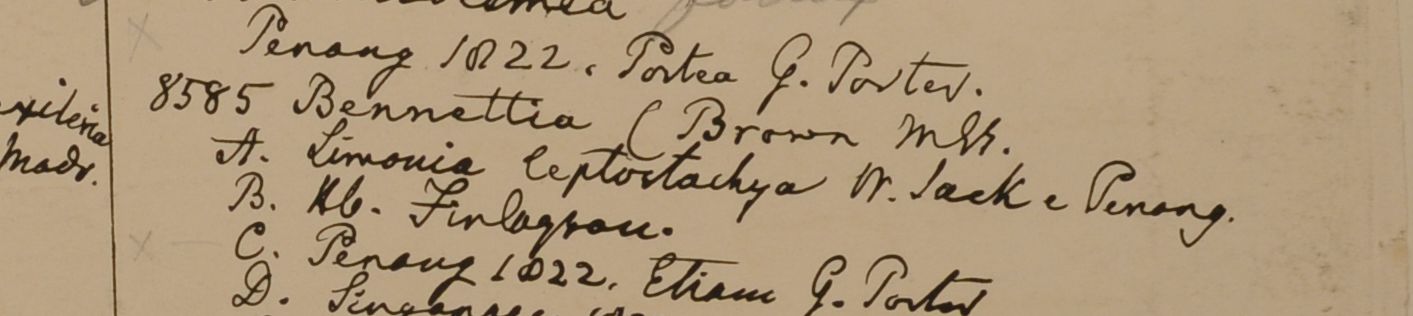 Penang 1822. Portea G. Porter.
8585 Bennettia (Brown Mss.
Madr.
A. Limonia leptostachya W. Jack e Penang.
B. Hb. Finlayson.
C. Penang 1822. Etiam G. Porter
D. Singapore